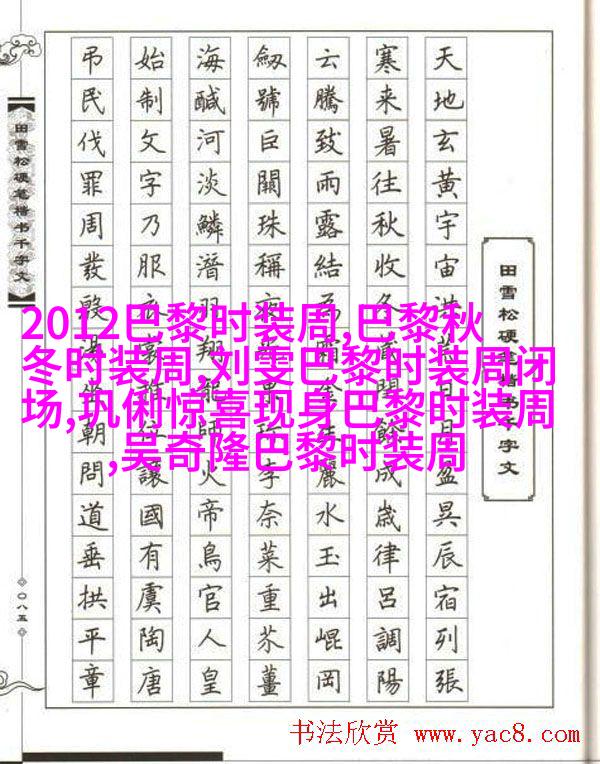 田雪松硬笔楷书千字文
天地玄黃宇宙洪荒日月盈昃辰宿列張
寒来暑往秋收冬藏閏餘成歲律呂調陽
云騰致雨露結為霜金生麗水玉出崐岡
劔號巨闕珠稱夜光果珍李奈菜重芥薑
海醎河淡鱗潛羽翔龍師火帝鳥官人皇
始制文字乃服衣裳推位讓國有虞陶唐
弔民伐罪周發殷湯坐朝問道垂拱平章
田雪松硬笔楷书千字文
〇八五
2012巴黎时装周,巴黎秋
冬时装周,刘雯巴黎时装周闭
场,巩俐惊喜现身巴黎时装周
,吴奇隆巴黎时装周
书法欣赏 www.yac8.com